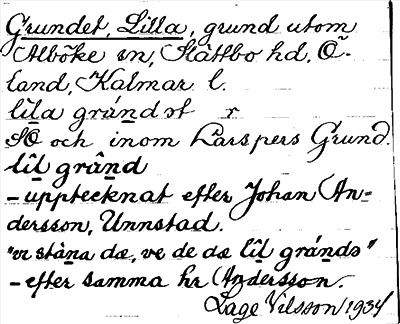 Grundet, Lilla, grund utom
Alböke sn, Slättbo hd, Ö-
land, Kalmar l.
lila grúndət r
SO och inom Larspers Grund.
lîl grând
- upptecknat efter Johan An-
dersson, Unnstad.
"vi stàna dæ, ve de dæ lîl gránds"
- efter samma hr Andersson.
Lage Nilsson 1934